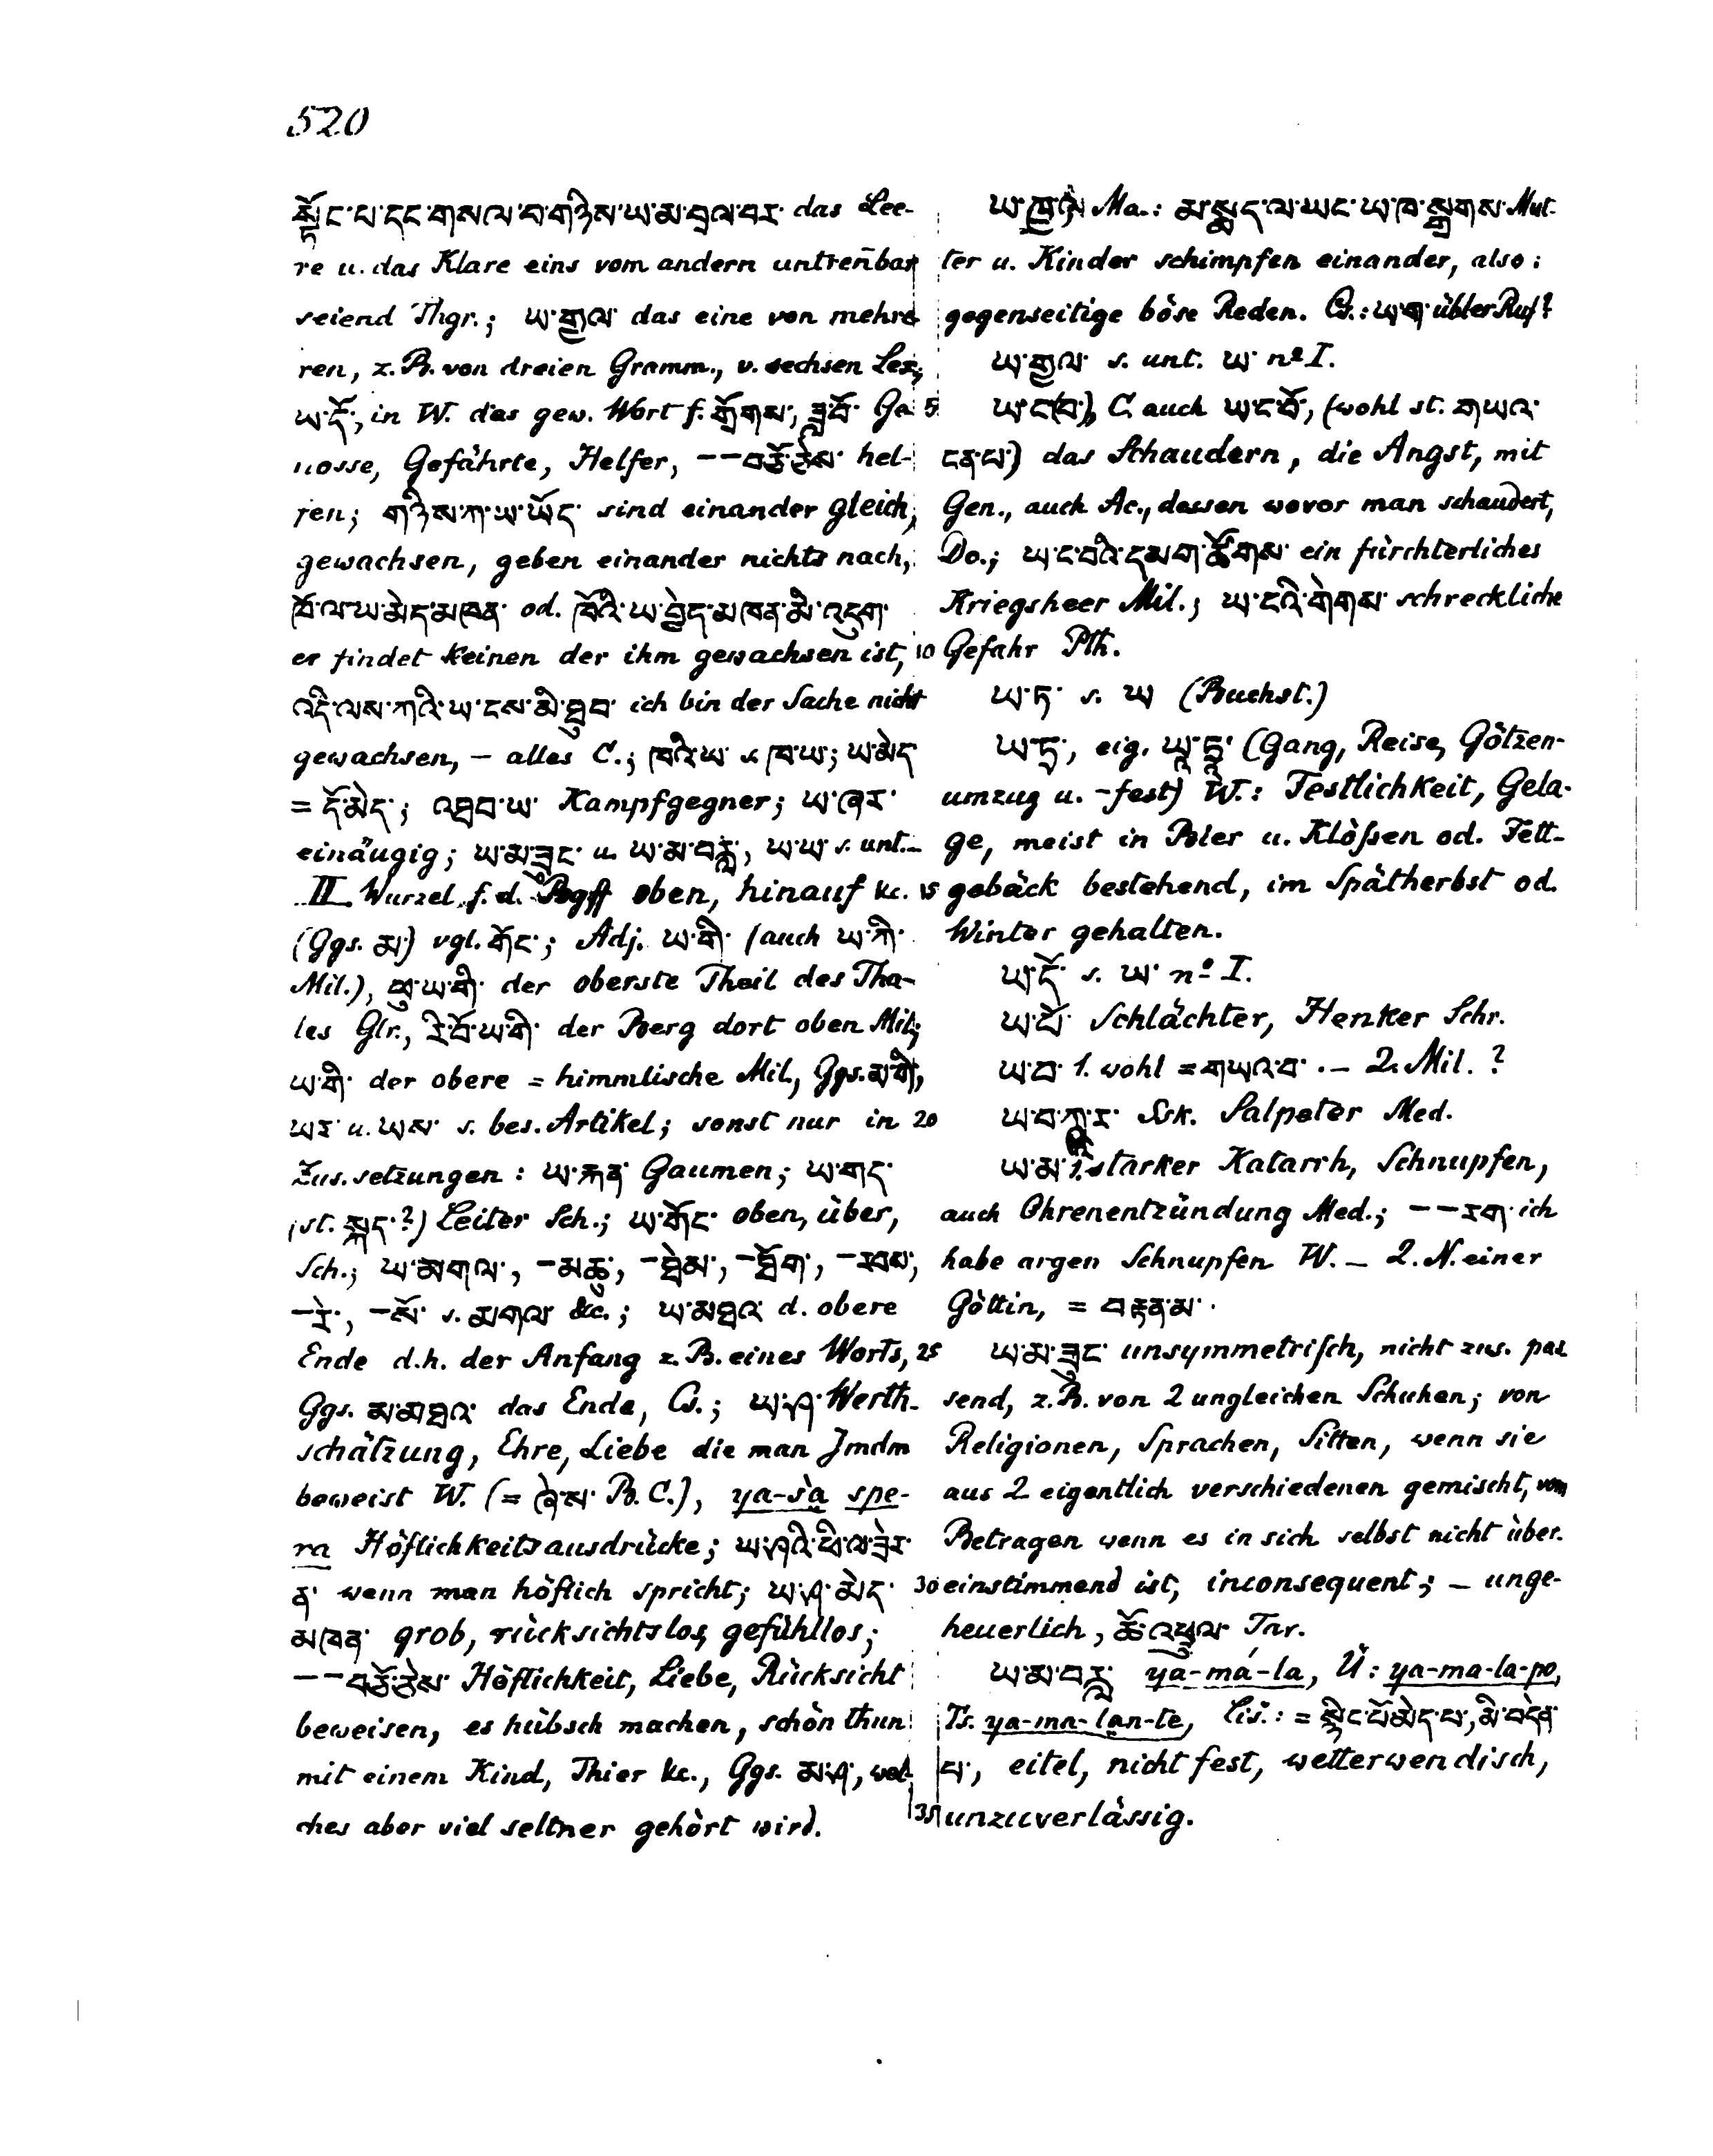 520
སྟོང་པ་དང་གསལ་བ་གཉིས་ཡ་མ་བྲལ་བར་ das Lee-
re u. das Klare eins vom andern untren̄bar
seiend Thgr.; ཡ་གྱལ་ das eine von mehre
ren, z.B. von dreien Gramm., v. sechsen Lex.;
ཡ་དོ་, in W. das gew. Wort f. གྲོགས་, ཟླ་བོ་ Ge
nosse, Gefährte, Helfer, –– བཅོ་ཅེས་ hel-
fen; གཉིས་ཀ་ཡ་ཡོད་ sind einander gleich,
gewachsen, geben einander nichts nach,
ཁོ་ལ་ཡ་མེད་མཁན་ od. ཁོའི་ཡ་བྱེད་མཁན་མི་འདུག་
er findet keinen der ihm gewachsen ist,
འདི་ལས་ཀའི་ཡ་ངས་མི་ཐུབ་ ich bin der Sache nicht
gewachsen, – alles C.; ཁའི་ཡ་ s. ཁ་ཡ་; ཡ་མེད་
= དོ་མེད་; འཐབ་ཡ་ Kampfgegner; ཡ་ཞར་
einäugig; ཡ་མ་ཟུང་ u. ཡ་མ་བརླ་, ཡ་ཡ་ s. unt. –
II. Wurzel f. d. Bgff oben, hinauf &c.
(Ggs. མ་) vgl. གོང་; Adj. ཡ་གི་ (auch ཡ་ཀི་
Mil.), ཕུ་ཡ་གི་ der oberste Theil des Tha-
les Glr., རི་བོ་ཡ་གི་ der Berg dort oben Mil.;
ཡ་གི་ der obere = himmlische Mil., Ggs. མ་གི་,
ཡར་ u. ཡས་ s. bes. Artikel; sonst nur in
Zus.setzungen: ཡ་རྐན་ Gaumen; ཡ་གད་
(st. སྐད་?) Leiter Sch.; ཡ་གོང་ oben, über,
Sch.; ཡ་མགལ་, –མཆུ་, –ཐེམ་, –ཐོག་, –རབས་,
–རེ་, –སོ་ s. མགལ་ &c.; ཡ་མཐའ་ d. obere
Ende d.h. der Anfang z.B. eines Worts,
Ggs. མ་མཐའ་ das Ende, Cs.; ཡ་ཤ་ Werth-
schätzung, Ehre, Liebe die man Jmdm
beweist W. (= ཞེ་ས་ B. C.), ya-sȧ spe-
ra Höflichkeitsausdrücke; ཡ་ཤའི་ཕི་ལ་ཟེར་
ན་ wenn man höflich spricht; ཡ་ཤ་མེད་
མཁན་ grob, rücksichtslos, gefühllos;
–– བཅོ་ཅེས་ Höflichkeit, Liebe, Rücksicht
beweisen, es hübsch machen, schön thun
mit einem Kind, Thier &c., Ggs. མ་ཤ་, wel
ches aber viel seltner gehört wird.
Ma.: མ་སྨད་ལ་ཡང་ཡ་ཁ་སྨྲགས་ Mut-
ter u. Kinder schimpfen einander, also:
gegenseitige böse Reden. Cs.: ཡ་ག་ übler Ruf?
ཡ་གྱལ་ s. unt. ཡ་ nº I.
5 ཡ་ང་(བ་), C. auch ཡ་ང་བོ་, (wohl st. གཡའ་
ངན་པ་) das Schaudern, die Angst, mit
Gen., auch Ac., dessen wovor man schaudert,
Do.; ཡ་ང་བའི་དམག་ཚོགས་ ein fürchterliches
Kriegsheer Mil.; ཡ་ངའི་གེགས་ schreckliche
10 Gefahr Pth.
ཡ་ཏ་ s. ཡ (Buchst.)
ཡ་ཏྲ་, eig. ཡཱ་ཏྲཱ་ (Gang, Reise, Götzen-
umzug u. -fest) W.: Festlichkeit, Gela-
ge, meist in Bier u. Klößen od. Fett-
15 gebäck bestehend, im Spätherbst od.
Winter gehalten.
ཡ་དོ་ s. ཡ་ nº I.
ཡ་པོ་ Schlächter, Henker Schr.
ཡ་བ་ 1. wohl = གཡའ་བ་. – 2. Mil.?
20 ཡ་བ་ཀྵཱ་ར་ Ssk. Salpeter Med.
ཡ་མ་ 1. starker Katarrh, Schnupfen,
auch Ohrenentzündung Med.; –– རག་ ich
habe argen Schnupfen W. – 2. N. einer
Göttin, = བརྟན་མ་.
25 ཡ་མ་ཟུང་ unsymmetrisch, nicht zus. pas
send, z.B. von 2 ungleichen Schuhen; von
Religionen, Sprachen, Sitten, wenn sie
aus 2 eigentlich verschiedenen gemischt, vom
Betragen wenn es in sich selbst nicht über-
30 einstimmend ist, inconsequent; – unge-
heuerlich, ཆོ་འཕྲུལ་ Tar.
ཡ་མ་བརླ་ ya-má-la, Ü: ya-ma-la-po,
Ts. ya-ma-lan-te, Lis.: = སྙིང་པོ་མེད་པ་, མི་བདེན་
པ་, eitel, nicht fest, wetterwendisch,
35 unzuverlässig.